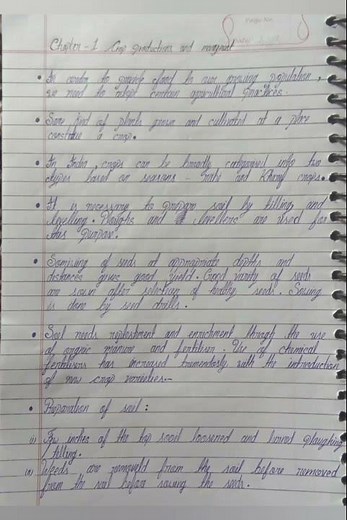 Chapter - 1 Crop production and
• In order to provide food to our growing population,
we need to adopt certain agricultural practices.
• Same kind of plants grown and cultivated at a place
constitute a crop.
• In India, crops can be broadly categorised into two
types based on seasons - rabi and kharif crops.
• It is necessary to prepare soil by tilling and
levelling. Ploughs and levellers are used for
this purpose.
• of seeds at appropriate depths and
distances gives good yield. Good variety of seeds
are sown after selection of healthy seeds. Sowing
is done by seed drills.
• Soil needs replenishment and enrichment through the use
of organic manure and fertilisers. Use of chemical
fertilisers has increased tremendously with the introduction
of new crop varieties.
• Preparation of soil:
i) Few inches of the top soil loosened and Ploughing
/ tilling.
ii) Weeds are removed from the soil before removed
from the soil before sowing the seeds.